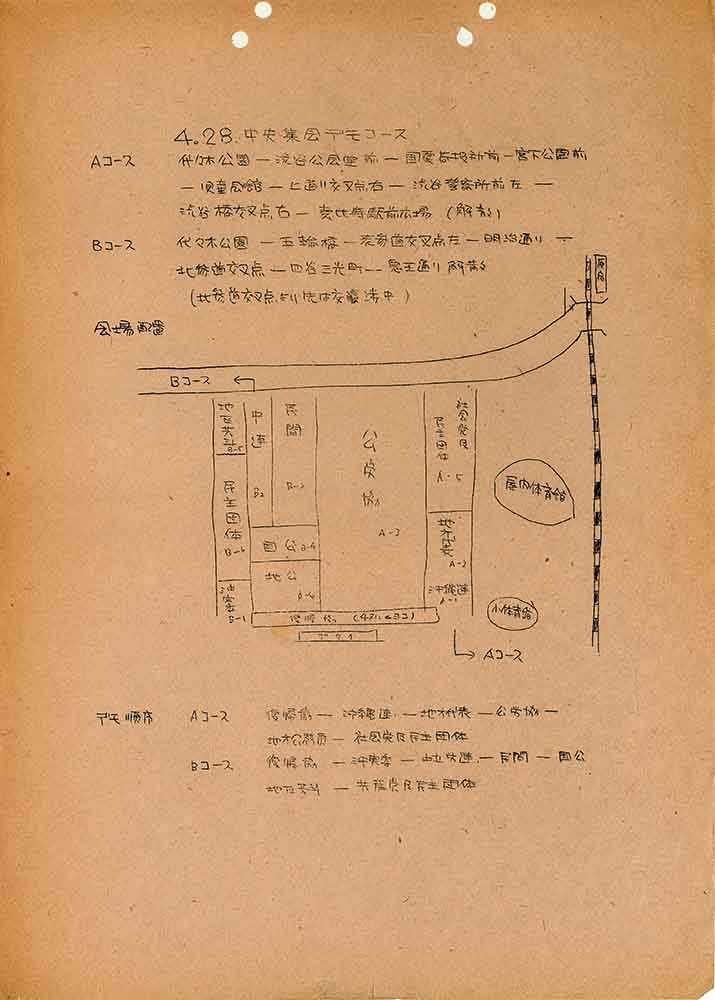 4.28.中央集会デモコース
Aコース 代々木公園 — 渋谷公会堂前 — 前 — 宮下公園前
— 児童会館 — 上通り交叉点右 — 渋谷警察所前左 —
渋谷橋交叉点右 — 恵比寿駅前広場 (解散)
Bコース 代々木公園 — 五輪橋 — 表参道交叉点左 — 明治通り —
北参道交叉点 — 四谷三光町 — 通り解散
(北参道交叉点より先は交渉中)
会場配置
原宿
Bコース
地区共斗
B-5
中連
B2
民間
B-3
公労協
A-3
社会党及
民主団体
A-5
民主団体
B-6
国公 B-4
地公
B-4
A-2
沖実委
B-1
沖縄連
A-1
復帰協
屋内体育館
小体育館
Aコース
デモ順序 Aコース 復帰協 — 沖縄連 — 地方代表 — 公労協 —
地方公務員 — 社会党及民主団体
Bコース 復帰協 — 沖実委 — 中立労連 — 民間 — 国公
地区共斗 — 共産党及民主団体